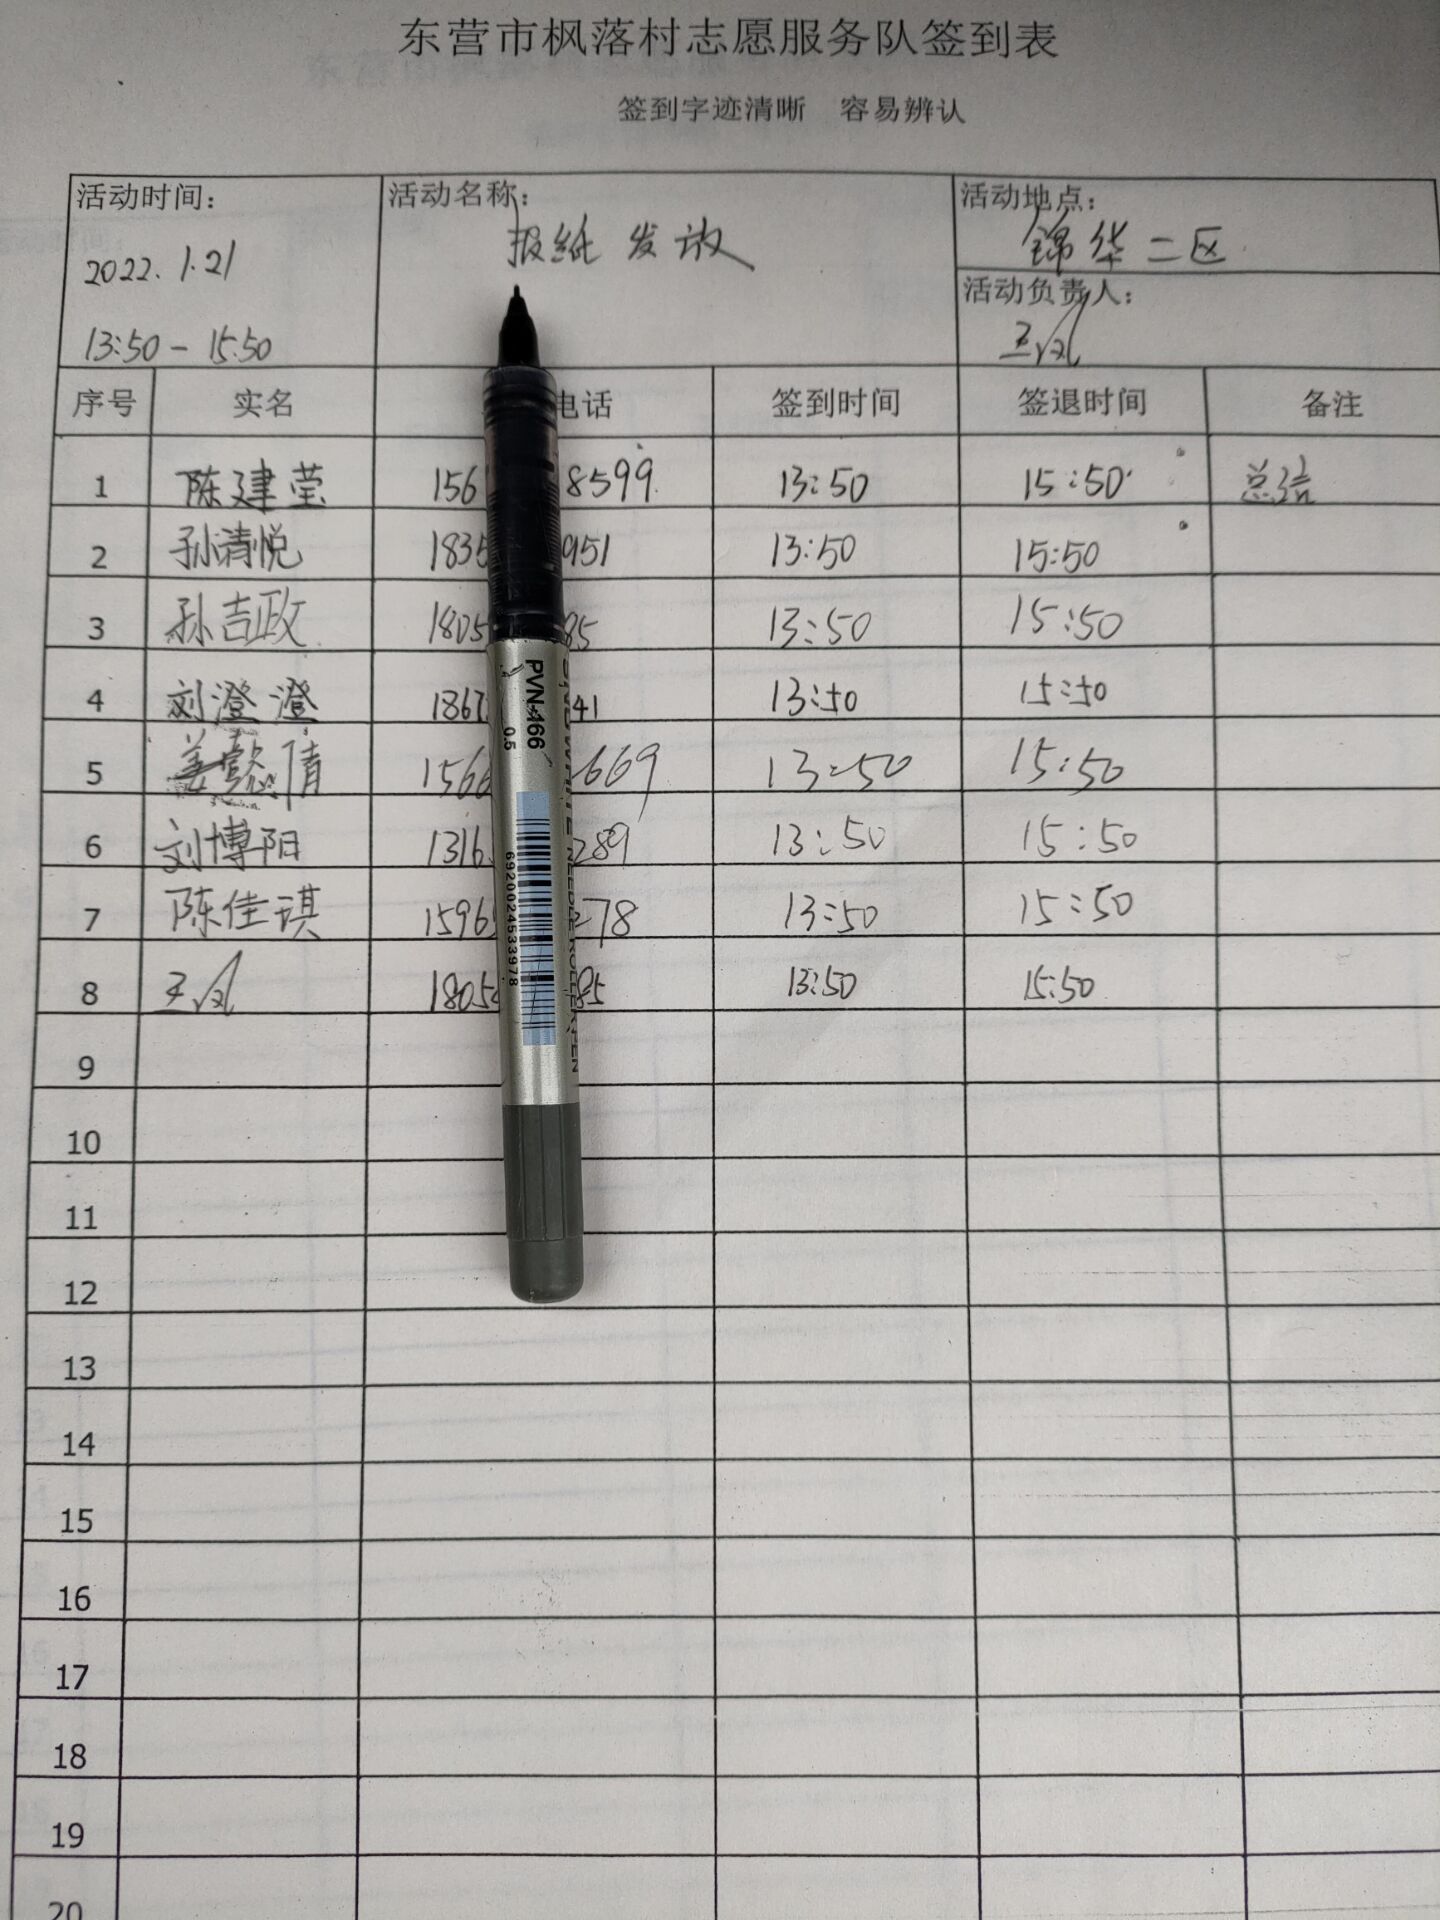 东营市枫落村志愿服务队签到表
签到字迹清晰 容易辨认
活动时间: 活动名称: 活动地点:
2022.1.21 报纸发放 锦华二区
活动负责人:
13:50-15:50 王凤
序号 实名 电话 签到时间 签退时间 备注
1 陈建莹 156 8599 13:50 15:50
2 孙清悦 1835 951 13:50 15:50
3 孙吉政 1805 85 13:50 15:50
4 刘澄澄 1867 41 13:50 15:50
5 姜懿倩 1566 669 13:50 15:50
6 刘博阳 1316 289 13:50 15:50
7 陈佳琪 1596 278 13:50 15:50
8 王凤 1805 85 13:50 15:50
9
10
11
12
13
14
15
16
17
18
19
20
PVN-166
0.5
6920024533978